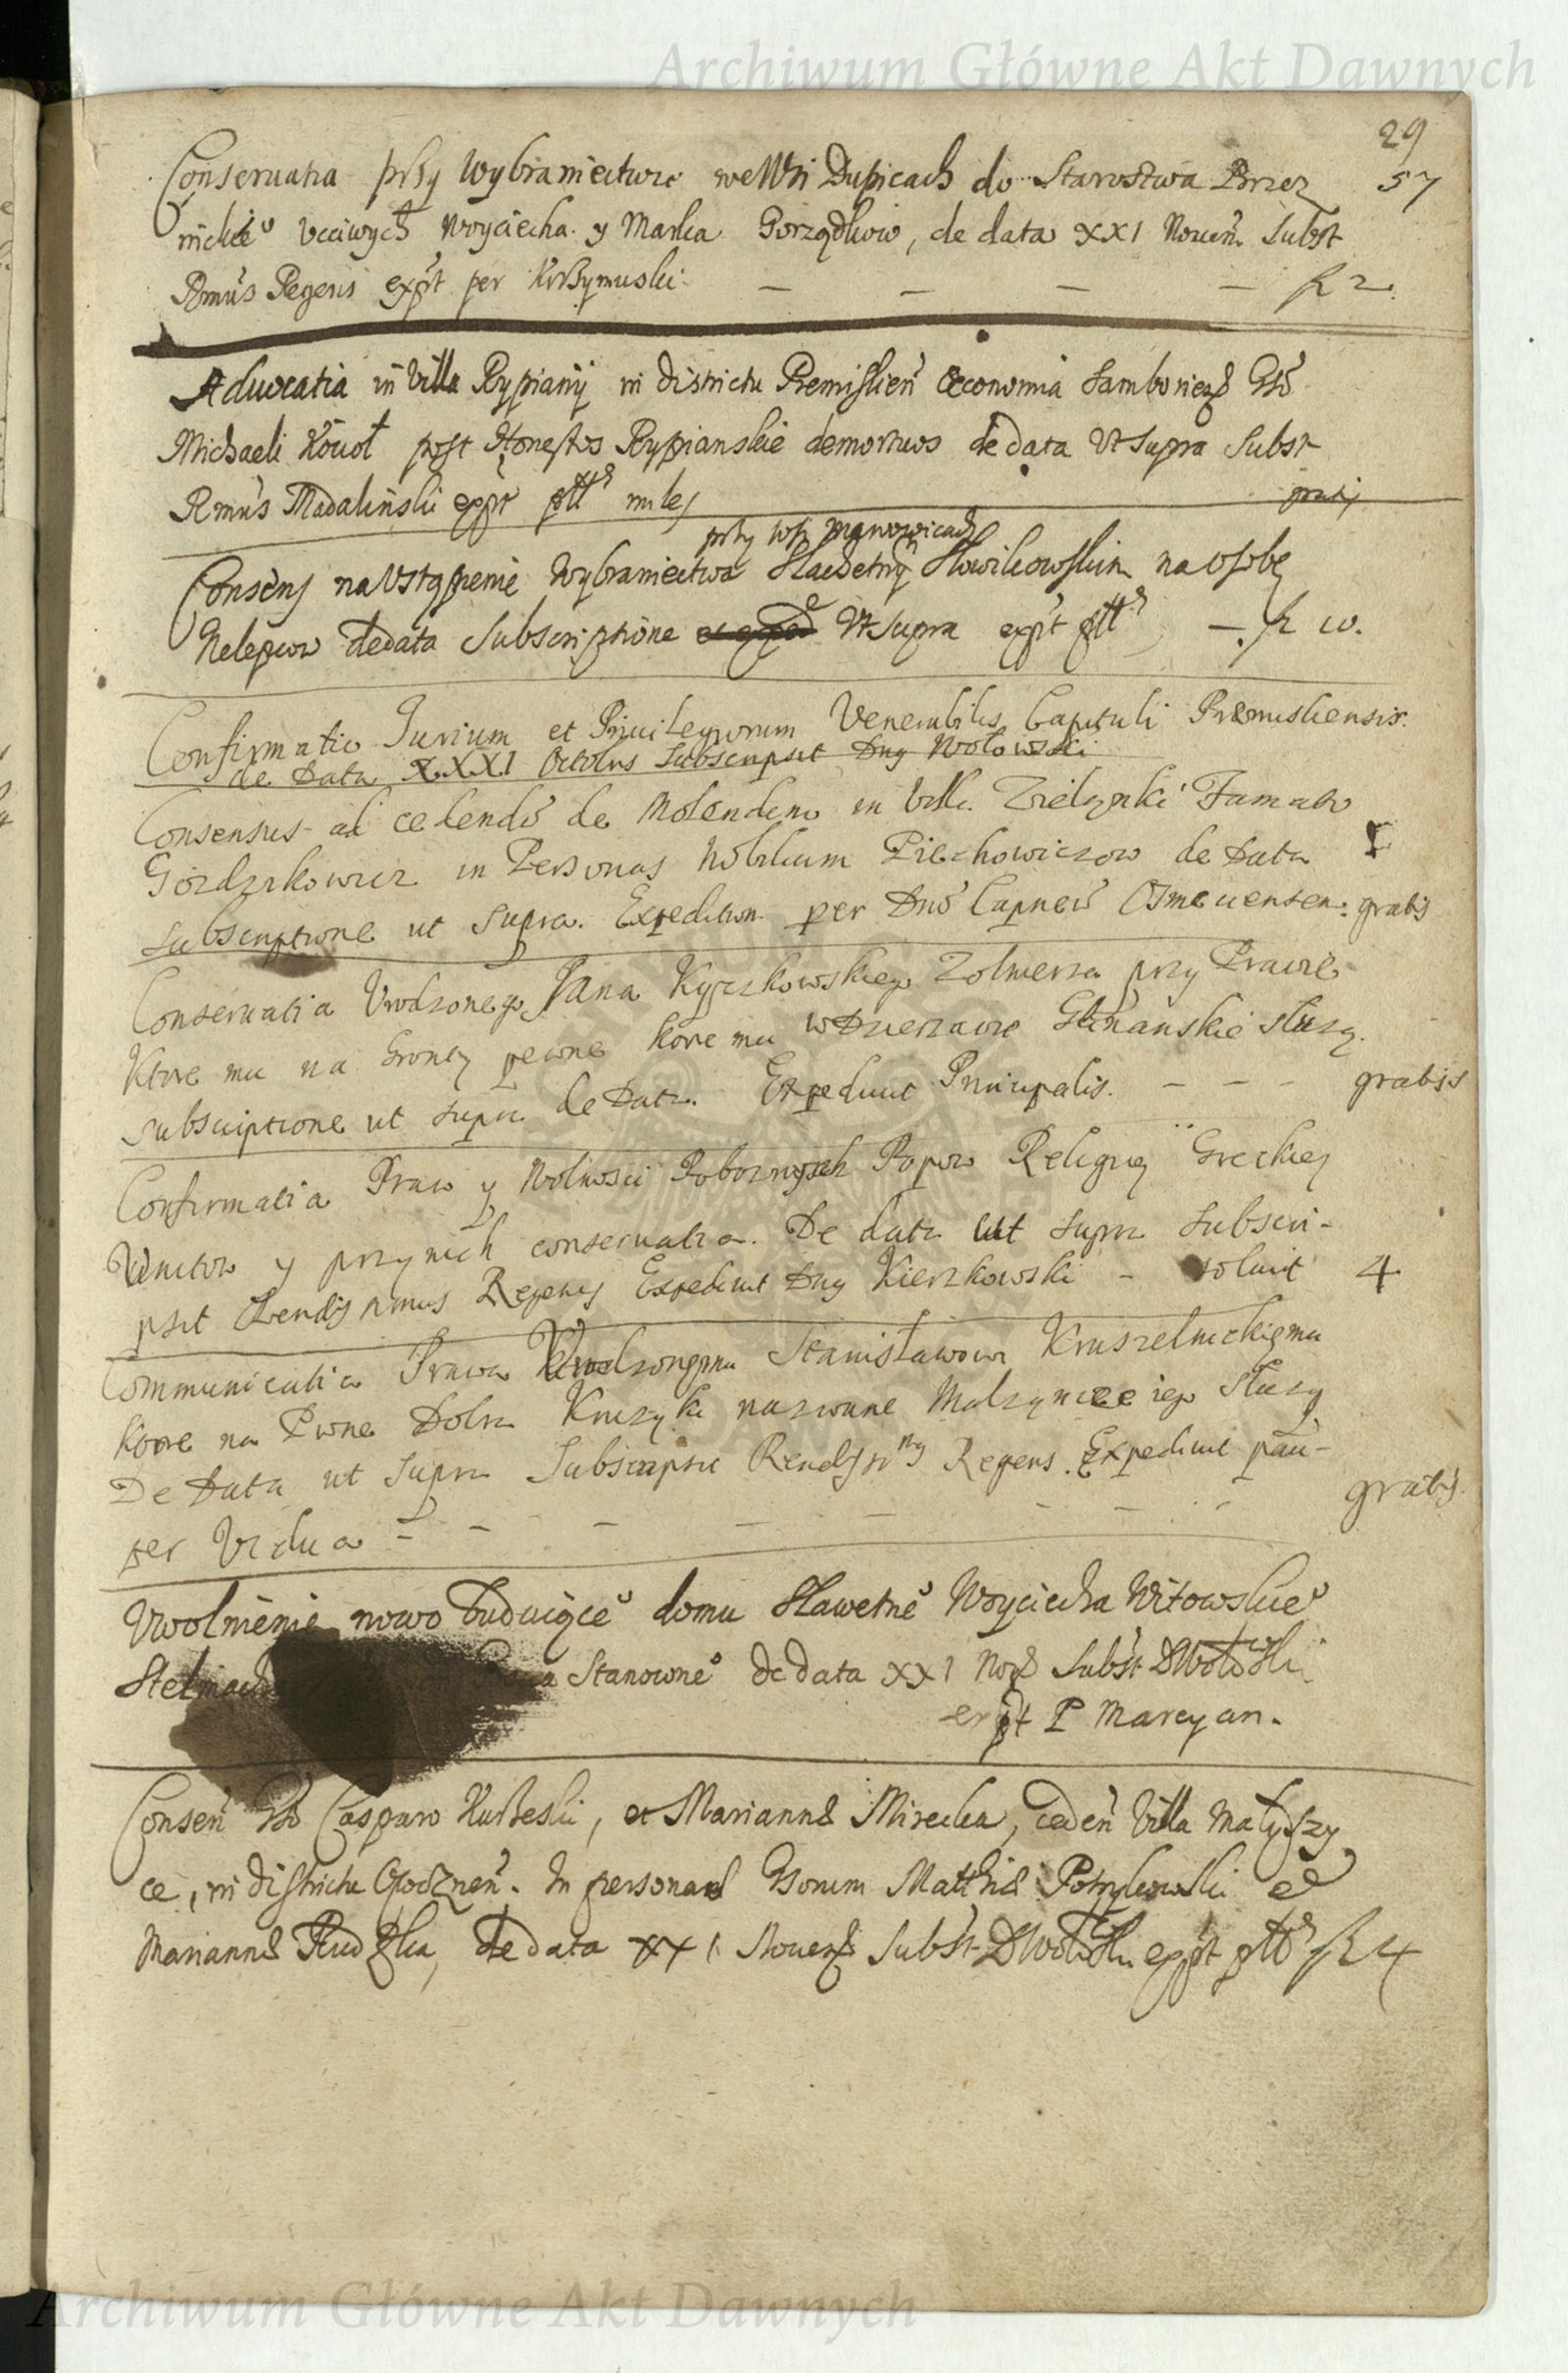 Archiwum Główne Akt Dawnych
29
57
Conseruatia przy Wybraniectwie we Wsi Dupicach do Starostwa Brzez
nickie° Vcciwych Woyciecha y Marka Gorządkow, de data XXI Nouem̃ Subst
Rmus Regens expt per Krzymuski — — — — fl 2
Aduocatia in Villa Rypiany in districtu Premislien Œconomia Samboriens Gso
Michaeli Kouot post Honestos Rypianskie demortuos de data Vt supra Subst
Rmus Madalinski expt miles gratis
przy wsi Manowicach
Consens na Vstąpienie Wybraniectwa Sławetny Słowikowskim na osobę
de data Subscriptione Vt supra expt — fl w.
Confirmatio Jurium et Priuilegiorum Venerabilis Capituli Præmisliensis.
de Data XXXI Octobris Subscripsit Dnus Wołowski
Consensus ad cedendũ de Molendino in Villa Zielonki Famato
Gozdzikowicz in Personas Nobilium Piechowiczow de Data
subscriptione ut supra. Expeditum per Dnũ Capneũ Osmeuensen: gratis
Conseruatia Vrodzonego Jana Kyczkowskiego Zolnierza przy Prawie
Ktore mu na Gronty pewne kore mu w Dzierzawie Glinianskie służy.
subscriptione ut supra de Data. Expediuit Principalis. — — — gratis
Confirmatia Praw y Wolnosci Poboznych Popow Religiey Greckiey
Unitow y przy nich conseruatia. De data ut supra subscri-
psit Rendissimus Regens Expediuit Dnus Kierzkowski — soluit 4
Communicatia Prawa Vrodzonemu Stanisławowi Kruszelnickiemu
kore na Pewne Dobra Kruzyki nazwane Małzynce iego służy
De Data ut supra Subscripsit Rendssimus Regens. Expediuit pau-
per Vidua — — — — — — — gratis.
Vwolnienie nowo buduiące° domu Sławetne° Woyciecha Witowskie°
Stelmach Stanowne° de data XXI Subst D Wołowski
expt P Marcyan.
Consen Gso Casparo , et Mariannæ Mirecka, ceden Villa Małyszy
ce, in districtu . In personas Gsorum Matthiæ Potrykowski et
Mariannæ Rudzka, de data XXI Nouens Subst D Wołowski expt fl 4
Archiwum Główne Akt Dawnych